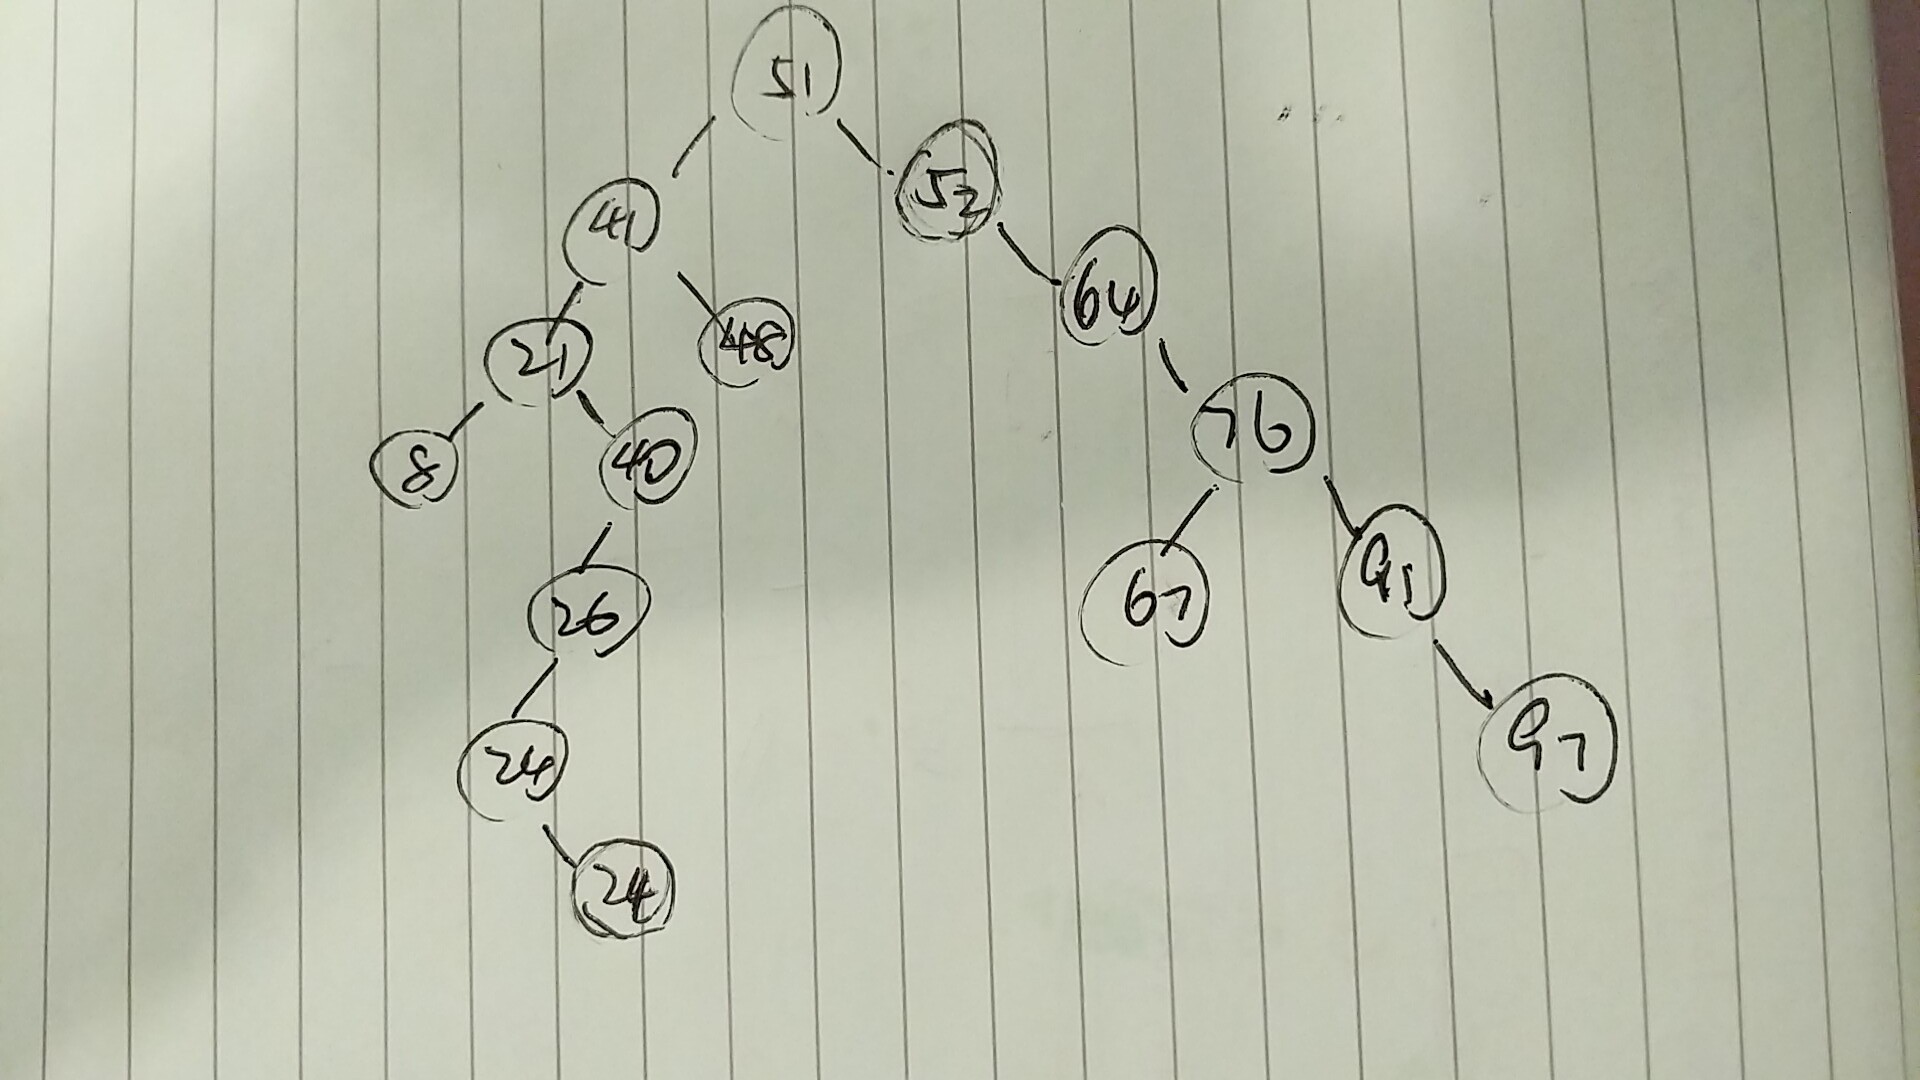 51
41 52
21 48 64
8 40 76
26 67 95
24 97
24